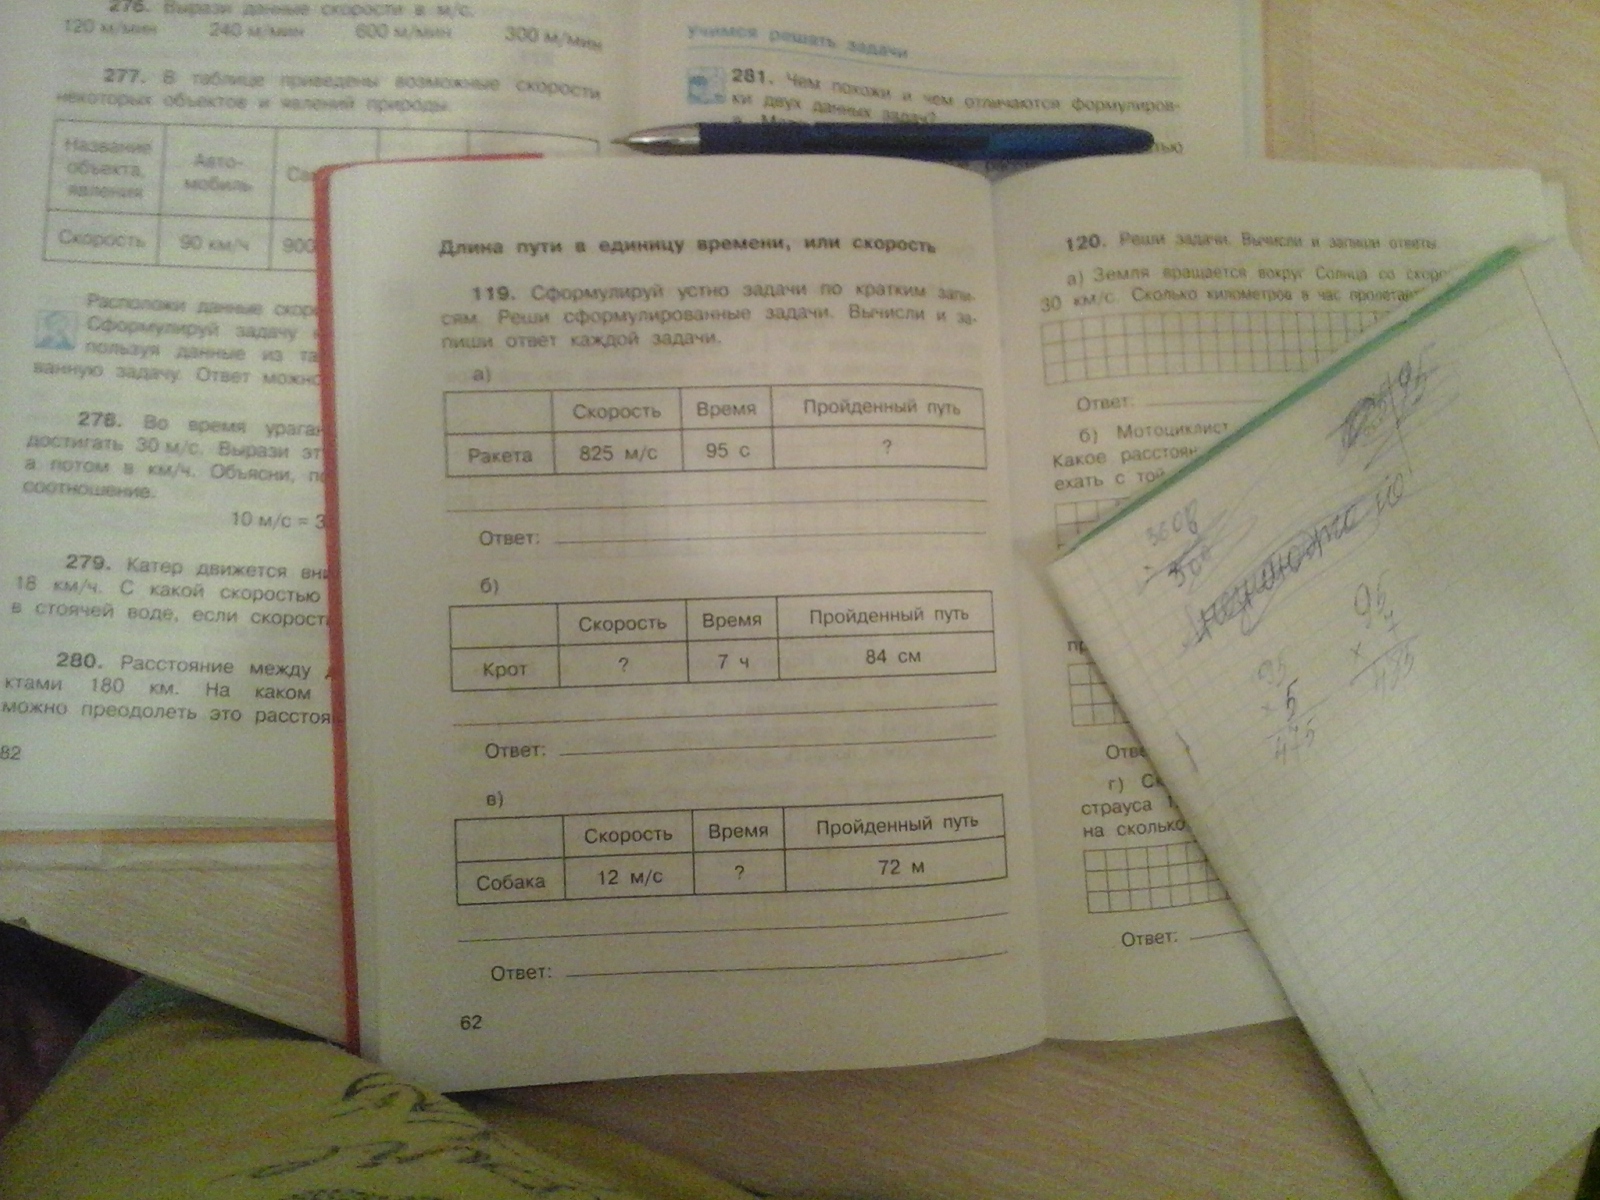 276. Вырази данные скорости в м/с.
120 м/мин 240 м/мин 600 м/мин 300 м/мин
277. В таблице приведены возможные скорости
некоторых объектов и явлений природы.
Название объекта, явления Авто-мобиль
Скорость 90 км/ч 900
Расположи данные
Сформулируй задачу
пользуя данные из
ванную задачу. Ответ
278. Во время
достигать 30 м/с. Вырази
а потом в км/ч. Объясни,
соотношение.
10 м/с = 3
279. Катер движется
18 км/ч. С какой скоростью
в стоячей воде, если
280. Расстояние между
ктами 180 км. На каком
можно преодолеть это
82
учимся решать задачи
281. Чем похожи и чем отличаются формулиров-
ки двух данных задач?
Длина пути в единицу времени, или скорость
119. Сформулируй устно задачи по кратким запи-
сям. Реши сформулированные задачи. Вычисли и за-
пиши ответ каждой задачи.
а)
Скорость Время Пройденный путь
Ракета 825 м/с 95 с ?
Ответ:
б)
Скорость Время Пройденный путь
Крот ? 7 ч 84 см
Ответ:
в)
Скорость Время Пройденный путь
Собака 12 м/с ? 72 м
Ответ:
62
120. Реши задачи. Вычисли и запиши ответы.
а) Земля вращается вокруг Солнца со
30 км/с. Сколько километров в час
Ответ:
б) Мотоциклист
Какое
ехать с той
г)
страуса
на сколько
Ответ:
95
× 5
475
95
×